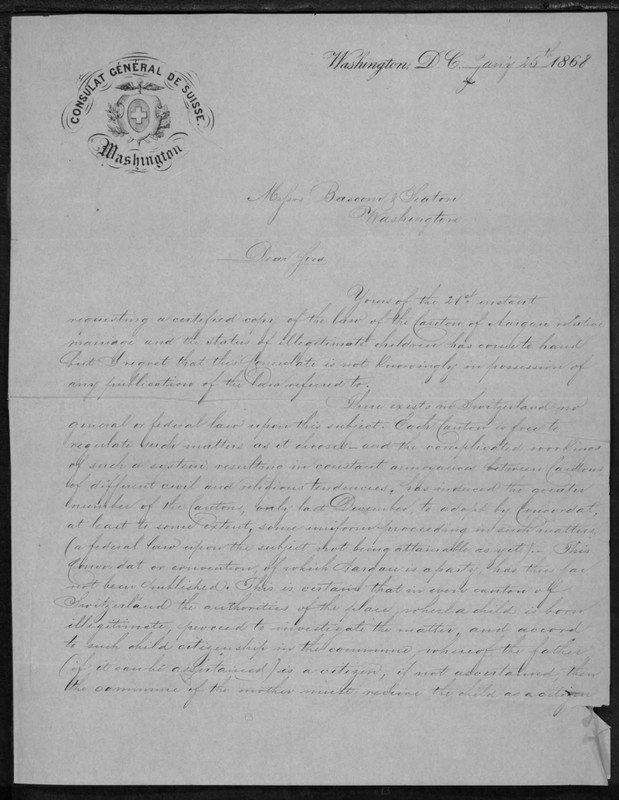 CONSULAT GÉNÉRAL DE SUISSE.
Washington
Washington, D. C. Jan'y 25th 1868
Messrs Bascom & Seaton
Washington
Dear Sirs
Yours of the 21st instant
requesting a certified copy of the law of the Canton of Aargau relative
marriage and the status of illegitimate children has come to hand
but I regret that this Consulate is not knowingly in possession of
any publication of the law referred to.
There exists in Switzerland no
general or federal law upon this subject. Each Canton is free to
regulate such matters as it chooses and the complicated workings
of such a system resulting in constant annoyances between Cantons
of different civil and religious tendencies, has induced the greater
number of the Cantons, only last December, to adopt by Concordat,
at least to some extent, some uniform proceeding in such matters
(a federal law upon the subject not being attainable as yet). This
Concordat or convention, of which Aargau is a party, has thus far
not been published. This is certain that in every canton of
Switzerland the authorities of the place, where a child is born
illegitimate, proceed to investigate the matter, and accord
to such child citizenship in the commune, whereof the father
(if it can be ascertained) is a citizen, if not ascertained, then
the commune of the mother must receive the child as a citizen